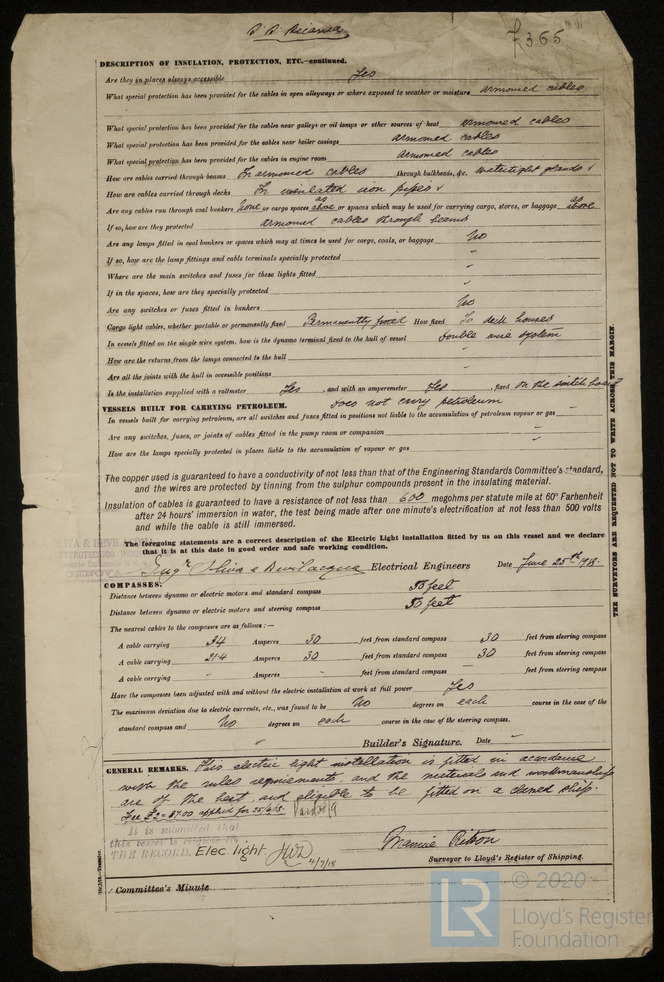 7365
DESCRIPTION OF INSULATION, PROTECTION, ETC.—continued.
Are they in places always accessible Yes
What special protection has been provided for the cables in open alleyways or where exposed to weather or moisture armoured cables
What special protection has been provided for the cables near galleys or oil lamps or other sources of heat armoured cables
What special protection has been provided for the cables near boiler casings armoured cables
What special protection has been provided for the cables in engine room armoured cables
How are cables carried through beams In armoured cables through bulkheads, &c. watertight glands
How are cables carried through decks In insulated iron pipes
Are any cables run through coal bunkers None or cargo spaces as above or spaces which may be used for carrying cargo, stores, or baggage as above
If so, how are they protected armoured cables through beams
Are any lamps fitted in coal bunkers or spaces which may at times be used for cargo, coals, or baggage No
If so, how are the lamp fittings and cable terminals specially protected "
Where are the main switches and fuses for these lights fitted "
If in the spaces, how are they specially protected "
Are any switches or fuses fitted in bunkers No
Cargo light cables, whether portable or permanently fixed Permanently fixed How fixed To deck houses
In vessels fitted on the single wire system, how is the dynamo terminal fixed to the hull of vessel double wire system
How are the returns from the lamps connected to the hull "
Are all the joints with the hull in accessible positions "
Is the installation supplied with a voltmeter Yes, and with an amperemeter Yes, fixed on the switch board
VESSELS BUILT FOR CARRYING PETROLEUM. does not carry petroleum
In vessels built for carrying petroleum, are all switches and fuses fitted in positions not liable to the accumulation of petroleum vapour or gas "
Are any switches, fuses, or joints of cables fitted in the pump room or companion "
How are the lamps specially protected in places liable to the accumulation of vapour or gas "
The copper used is guaranteed to have a conductivity of not less than that of the Engineering Standards Committee's standard,
and the wires are protected by tinning from the sulphur compounds present in the insulating material.
Insulation of cables is guaranteed to have a resistance of not less than 600 megohms per statute mile at 60° Farhenheit
after 24 hours' immersion in water, the test being made after one minute's electrification at not less than 500 volts
and while the cable is still immersed.
The foregoing statements are a correct description of the Electric Light installation fitted by us on this vessel and we declare
that it is at this date in good order and safe working condition.
Oliva e Bevilacqua Electrical Engineers Date June 25th 1918.
COMPASSES.
Distance between dynamo or electric motors and standard compass 50 feet
Distance between dynamo or electric motors and steering compass 50 feet
The nearest cables to the compasses are as follows:—
A cable carrying Amperes 30 feet from standard compass 30 feet from steering compass
A cable carrying Amperes 30 feet from standard compass 30 feet from steering compass
A cable carrying - Amperes - feet from standard compass - feet from steering compass
Have the compasses been adjusted with and without the electric installation at work at full power Yes
The maximum deviation due to electric currents, etc., was found to be No degrees on each course in the case of the
standard compass and No degrees on each course in the case of the steering compass.
" Builder's Signature. Date "
GENERAL REMARKS. This electric light installation is fitted in accordance
with the rules requirements, and the materials and workmanship
are of the best, and eligible to be fitted on a classed ship.
applied for 25/6/18.
It is submitted that
this vessel is eligible for
THE RECORD. Elec light. 11/7/18
Surveyor to Lloyd's Register of Shipping.
Committee's Minute
THE SURVEYORS ARE REQUESTED NOT TO WRITE ACROSS THIS MARGIN.
LR © 2020
Lloyd's Register
Foundation